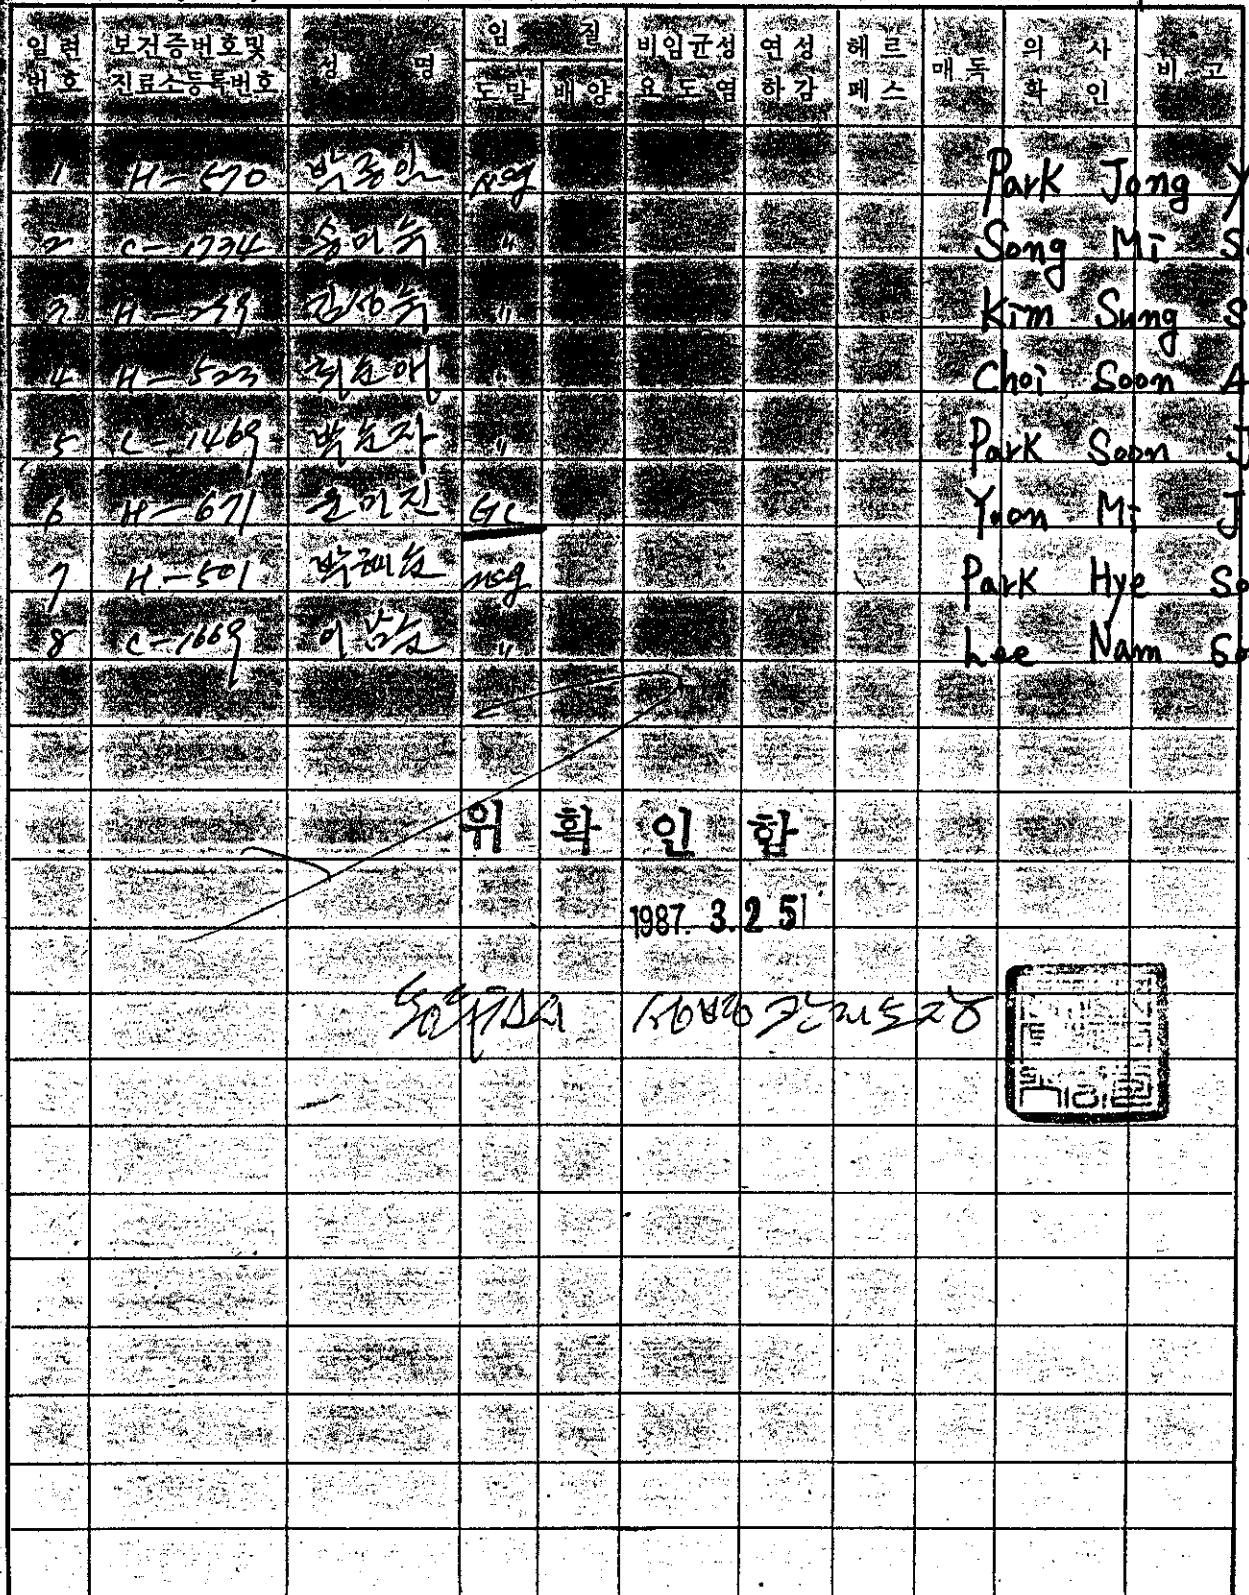 일련번호 보건증번호및진료소등록번호 성명 임질 도말 배양 비임균성요도염 연성하감 헤르페스 매독 의사확인 비고
1 H-570 박종인 neg Park Jong Y
2 C-1734 송미숙 " Song Mi S
3 H-279 김성숙 " Kim Sung S
4 H-523 최순애 " Choi Soon A
5 C-1469 박순자 " Park Soon J
6 H-671 윤미진 GC Yoon Mi J
7 H-501 박혜숙 neg Park Hye So
8 C-1669 이남송 " Lee Nam So
위 확인함
1987. 3. 25
성병관리소장